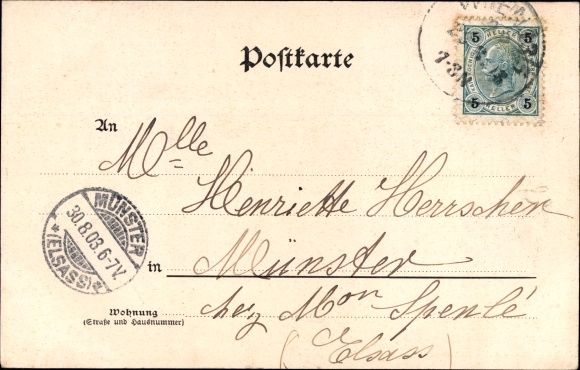 WIEN
5 HELLER 5
5 HELLER 5
Postkarte
An
Mlle
Henriette Herrscher
MÜNSTER
30.8.03.6-7V.
*(ELSASS)*
in Münster
Wohnung
(Straße und Hausnummer)
chez Mon Spenlé
(Elsass)